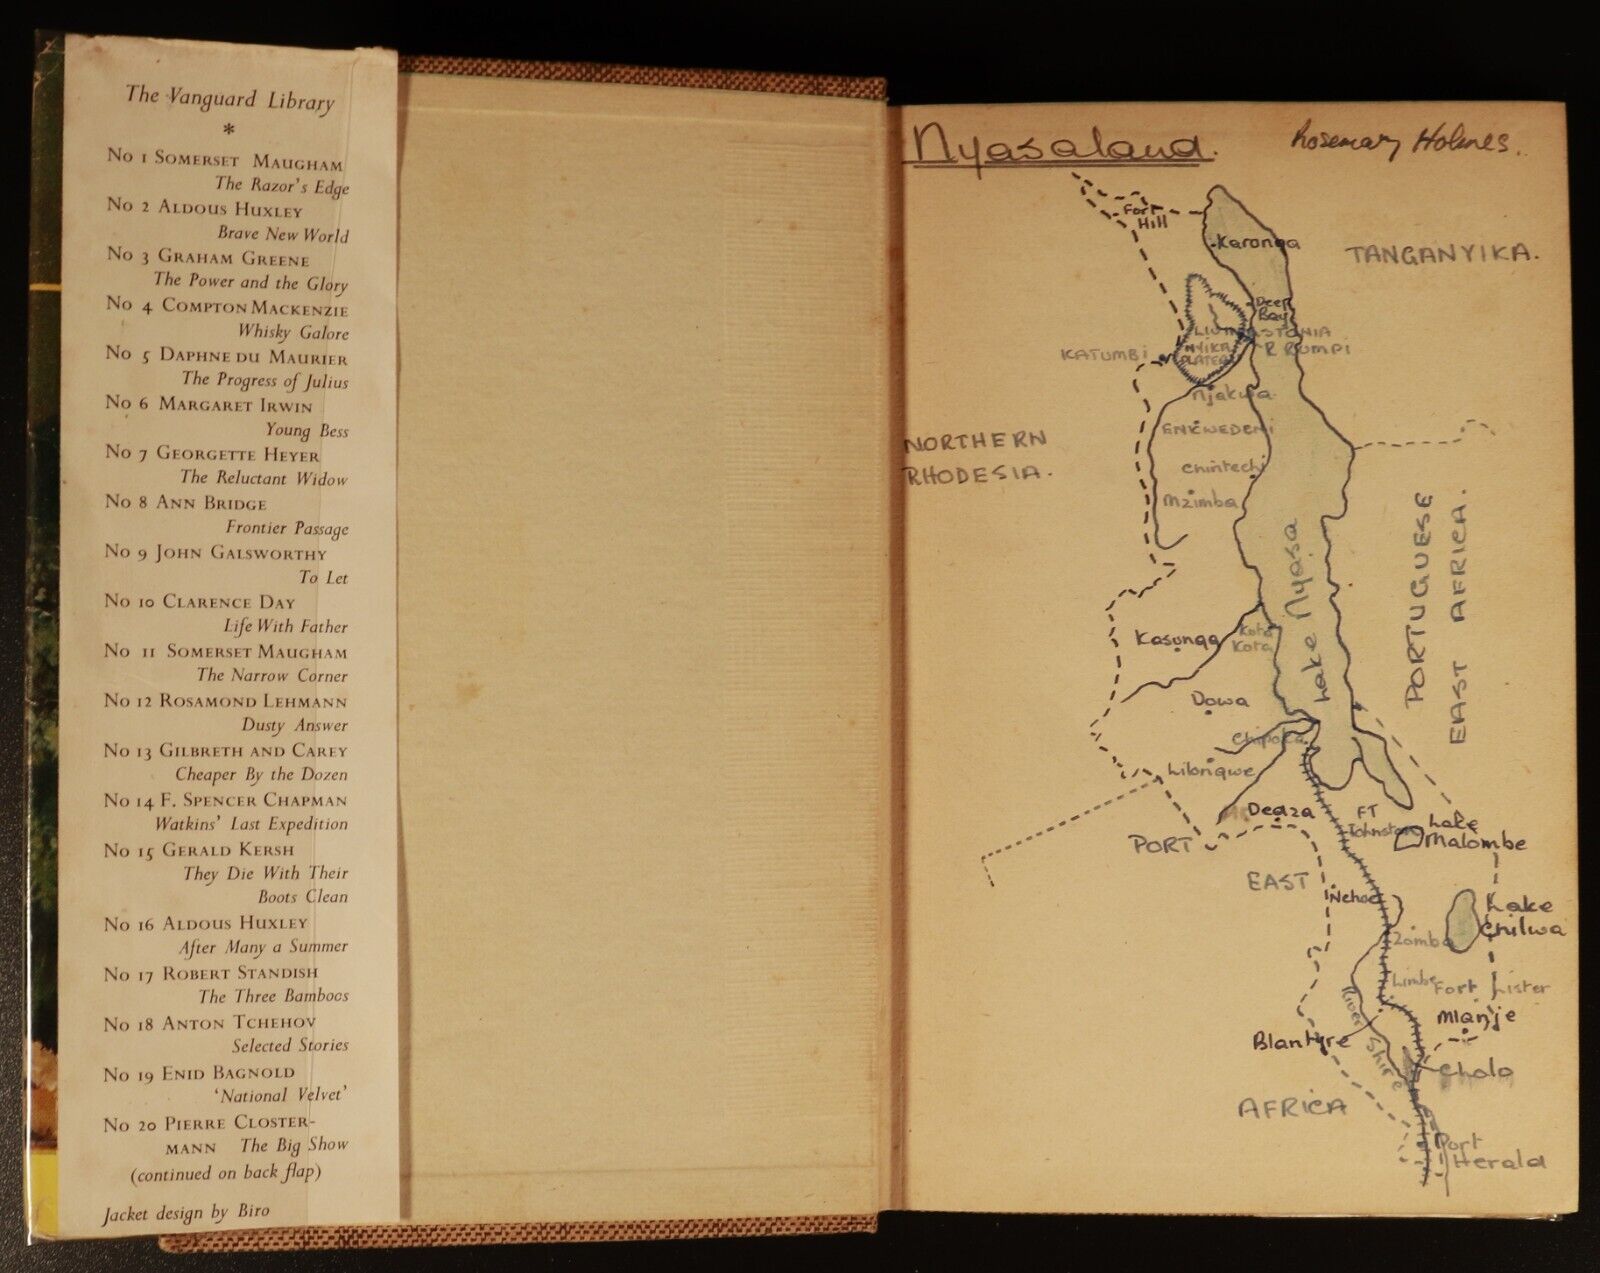 The Vanguard Library
*
No 1 SOMERSET MAUGHAM
The Razor's Edge
No 2 ALDOUS HUXLEY
Brave New World
No 3 GRAHAM GREENE
The Power and the Glory
No 4 COMPTON MACKENZIE
Whisky Galore
No 5 DAPHNE DU MAURIER
The Progress of Julius
No 6 MARGARET IRWIN
Young Bess
No 7 GEORGETTE HEYER
The Reluctant Widow
No 8 ANN BRIDGE
Frontier Passage
No 9 JOHN GALSWORTHY
To Let
No 10 CLARENCE DAY
Life With Father
No 11 SOMERSET MAUGHAM
The Narrow Corner
No 12 ROSAMOND LEHMANN
Dusty Answer
No 13 GILBRETH AND CAREY
Cheaper By the Dozen
No 14 F. SPENCER CHAPMAN
Watkins' Last Expedition
No 15 GERALD KERSH
They Die With Their
Boots Clean
No 16 ALDOUS HUXLEY
After Many a Summer
No 17 ROBERT STANDISH
The Three Bamboos
No 18 ANTON TCHEHOV
Selected Stories
No 19 ENID BAGNOLD
'National Velvet'
No 20 PIERRE CLOSTER-
MANN The Big Show
(continued on back flap)
Jacket design by Biro
Nyasaland.
Rosemary Holmes.
Fort
Hill
Karonga
TANGANYIKA.
Deep
Bay
LIVINGSTONIA
KATUMBI
NYIKA
PLATEAU
R RUMPI
Njakwa
NORTHERN
RHODESIA.
ENKWEDENI
Chintechi
Mzimba
Lake Nyasa
PORTUGUESE
EAST AFRICA.
Kasungu
Kota
Kota
Dowa
Chipoka
Lilongwe
Dedza
FT
Johnston
Lake
Malombe
PORT
EAST
Ncheu
Lake
Chilwa
Zomba
Limbe
Fort Lister
River Shire
Mlanje
Blantyre
Cholo
AFRICA
Port
Herald